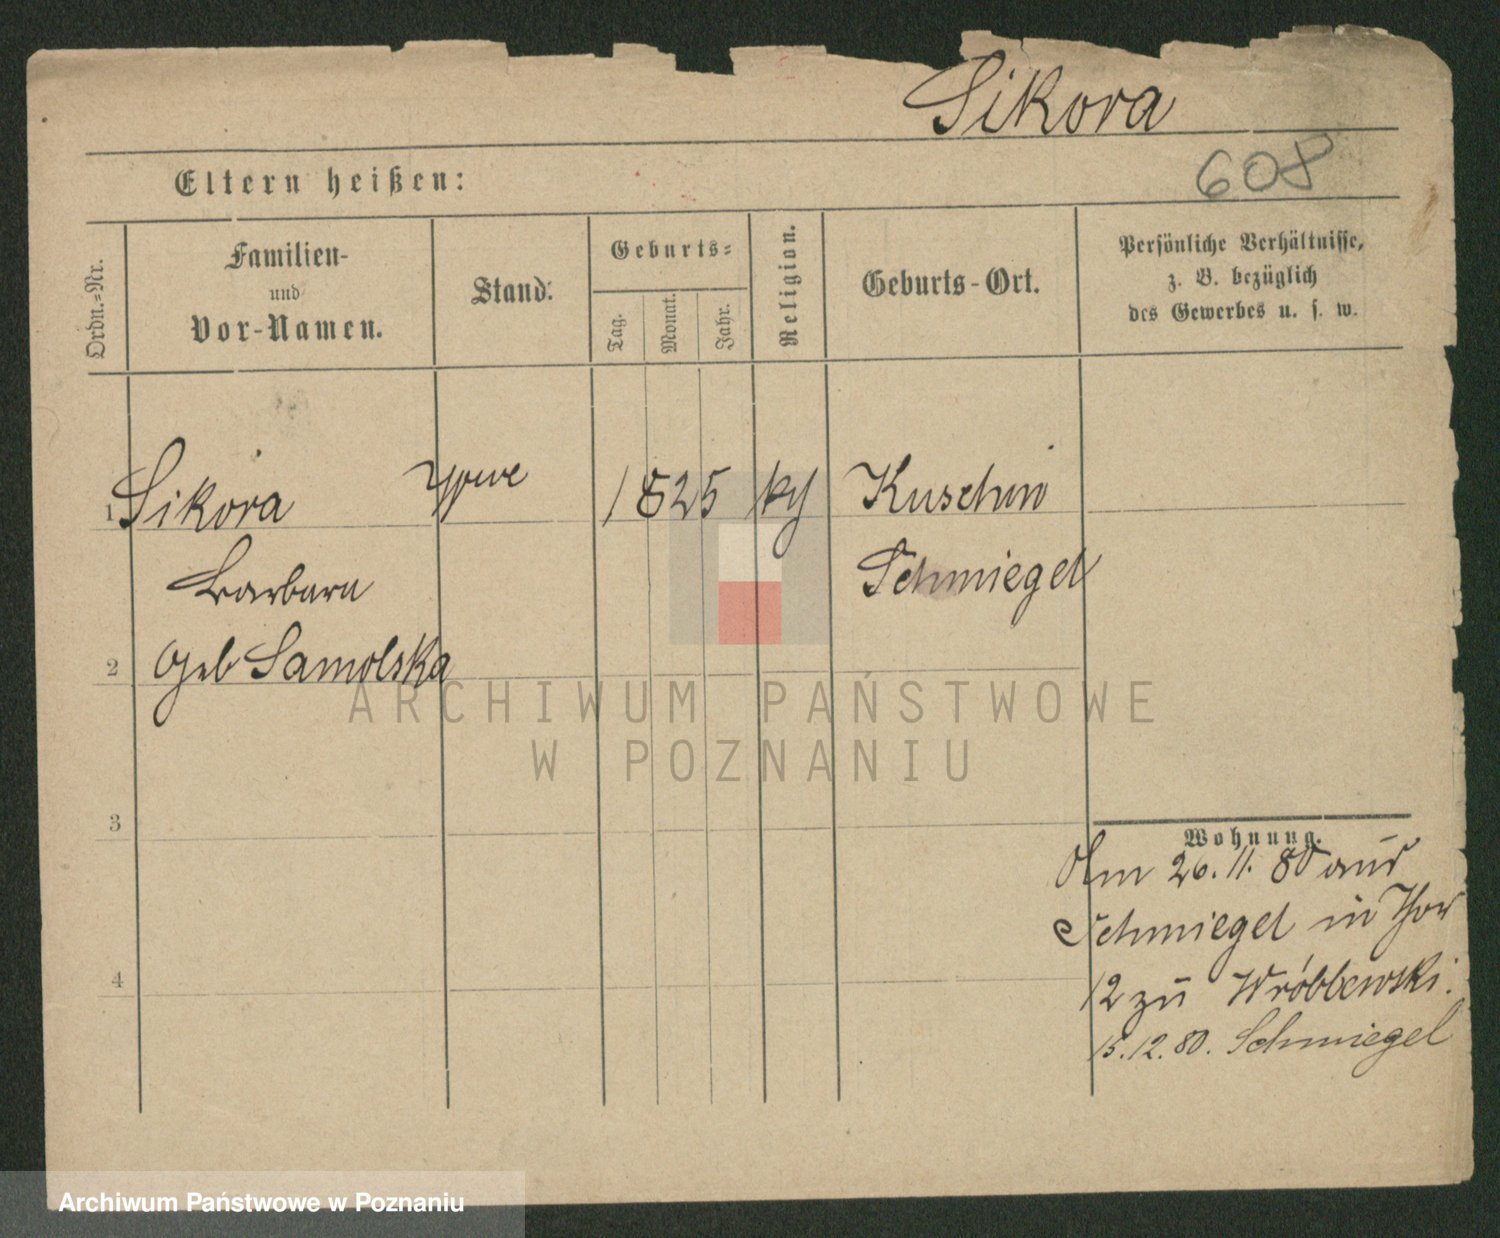 Sikora
608
Eltern heißen:
Ordn.=Nr.
Familien-
und
Vor-Namen.
Stand.
Geburts=
Tag.
Monat.
Jahr.
Religion.
Geburts-Ort.
Persönliche Verhältnisse,
z. B. bezüglich
des Gewerbes u. s. w.
1 Sikora 1825 Kuschin
Barbara Schmiegel
2 geb Samolska
3
Wohnung.
Am 26.11.80 aus
Schmiegel in Thor
12 zu Wróblewski.
15.12.80. Schmiegel
4
ARCHIWUM PAŃSTWOWE
W POZNANIU
Archiwum Państwowe w Poznaniu